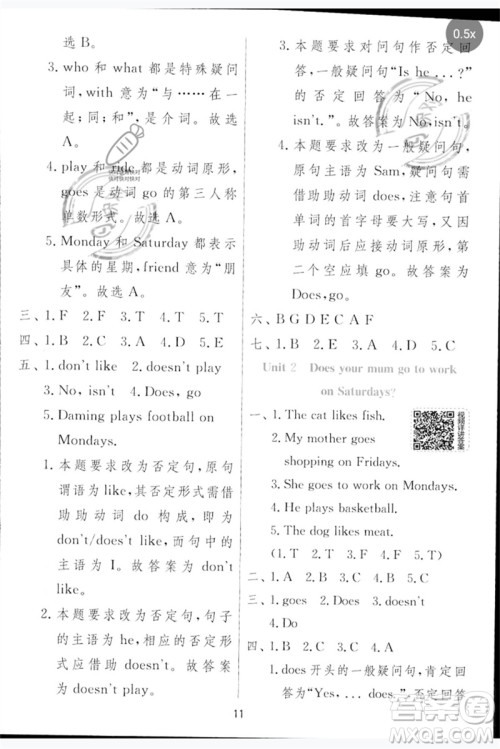 0.5x
选 B。
3. who 和 what 都是特殊疑问
词，with 意为“与……在一
起；同；和”，是介词。故选
A。
4. play 和 ride 都是动词原形，
goes 是动词 go 的第三人称
单数形式。故选 A。
5. Monday 和 Saturday 都表示
具体的星期，friend 意为“朋
友”。故选 A。
三、1. F 2. F 3. T 4. T 5. T
四、1. B 2. C 3. A 4. D 5. E
五、1. don't like 2. doesn't play
3. No, isn't 4. Does, go
5. Daming plays football on
Mondays.
1. 本题要求改为否定句，原句
谓语为 like，其否定形式需借
助助动词 do 构成，即为
don't/does't like，而句中的
主语为 I。故答案为 don't
like。
2. 本题要求改为否定句，句子
的主语为 he，相应的否定形
式应借助 doesn't。故答案为
doesn't play。
3. 本题要求对问句作否定回
答，一般疑问句“Is he ...?”
的否定回答为“No, he
isn't.”。故答案为 No, isn't。
4. 本题要求改为一般疑问句，
原句主语为 Sam，疑问句应
借助助动词 does，注意句首
单词的首字母要大写，又因
助动词后应接动词原形，第
二个空应填 go。故答案为
Does, go。
六、B G D E C A F
七、1. B 2. C 3. A 4. D
Unit 2 Does your mum go to work
on Saturdays?
一、1. The cat likes fish.
2. My mother goes
shopping on Fridays.
3. She goes to work on Mondays.
4. He plays basketball.
5. The dog likes meat.
(1. T 2. F 3. F 4. T 5. T)
二、1. A 2. C 3. B 4. C 5. A
三、1. goes 2. Does 3. doesn't
4. Do
四、1. B 2. C 3. A 4. B 5. C
1. does 开头的一般疑问句，肯定
回答为“Yes, ... does.”，否定回答
视频详讲答案
11
作业精灵
MXQE.COM